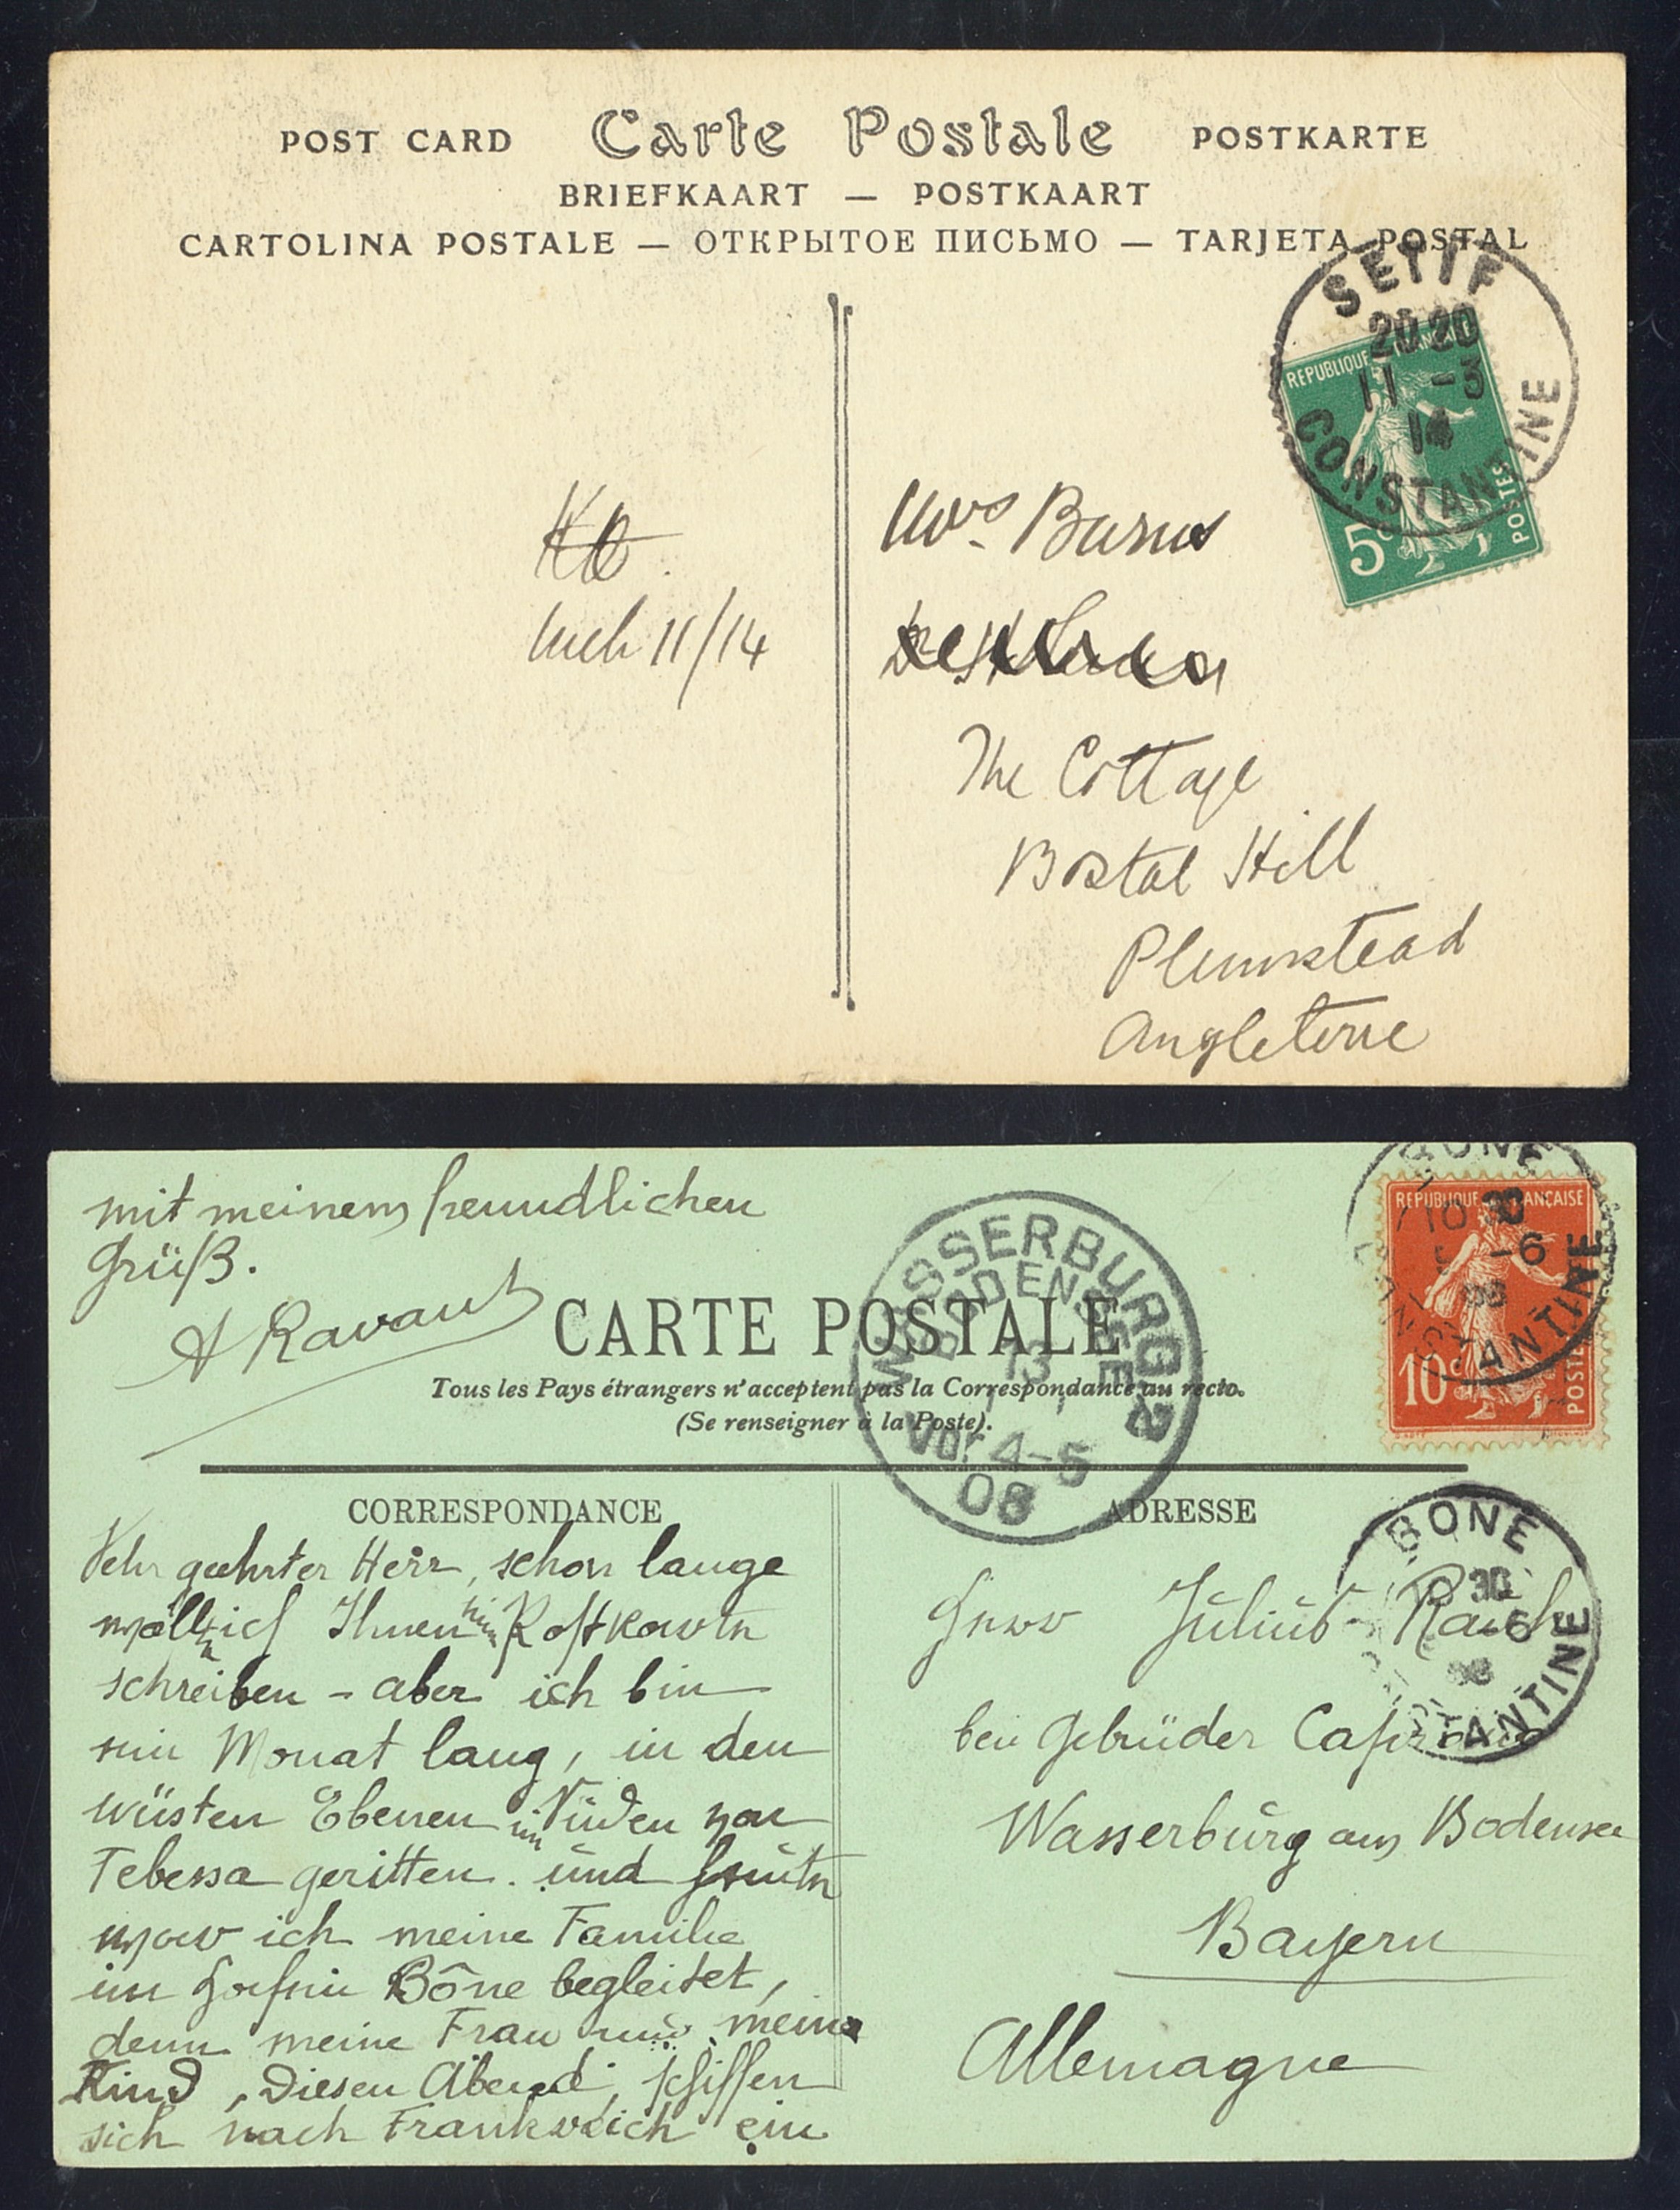 POST CARD Carte Postale POSTKARTE
BRIEFKAART — POSTKAART
CARTOLINA POSTALE — ОТКРЫТОЕ ПИСЬМО — TARJETA POSTAL
SETIF
20 20
11 -3
14
CONSTANTINE
REPUBLIQUE FRANÇAISE
5c
POSTES
Mrs Burns
The Cottage
Bostal Hill
Plumstead
Angleterre
Mch 11/14
mit meinem freundlichen
Grüß.
A Ravaut
CARTE POSTALE
Tous les Pays étrangers n'acceptent pas la Correspondance au recto.
(Se renseigner à la Poste).
WASSERBURG 2
BODENSEE
13
Vor 4-5
08
BONE
10 30
5 -6
08
CONSTANTINE
REPUBLIQUE FRANÇAISE
10c
POSTES
CORRESPONDANCE
Sehr geehrter Herr, schon lange
wollte ich Ihnen Postkarte
schreiben - aber ich bin
ein Monat lang, in den
wüsten Ebenen im Süden von
Tebessa geritten. und heute
war ich meine Familie
im Hafen Bône begleitet,
denn meine Frau und mein
Kind, diesen Abend, schiffen
sich nach Frankreich ein
ADRESSE
BONE
30
-6
08
CONSTANTINE
Herr Julius Rauh
bei Gebrüder
Wasserburg am Bodensee
Bayern
Allemagne